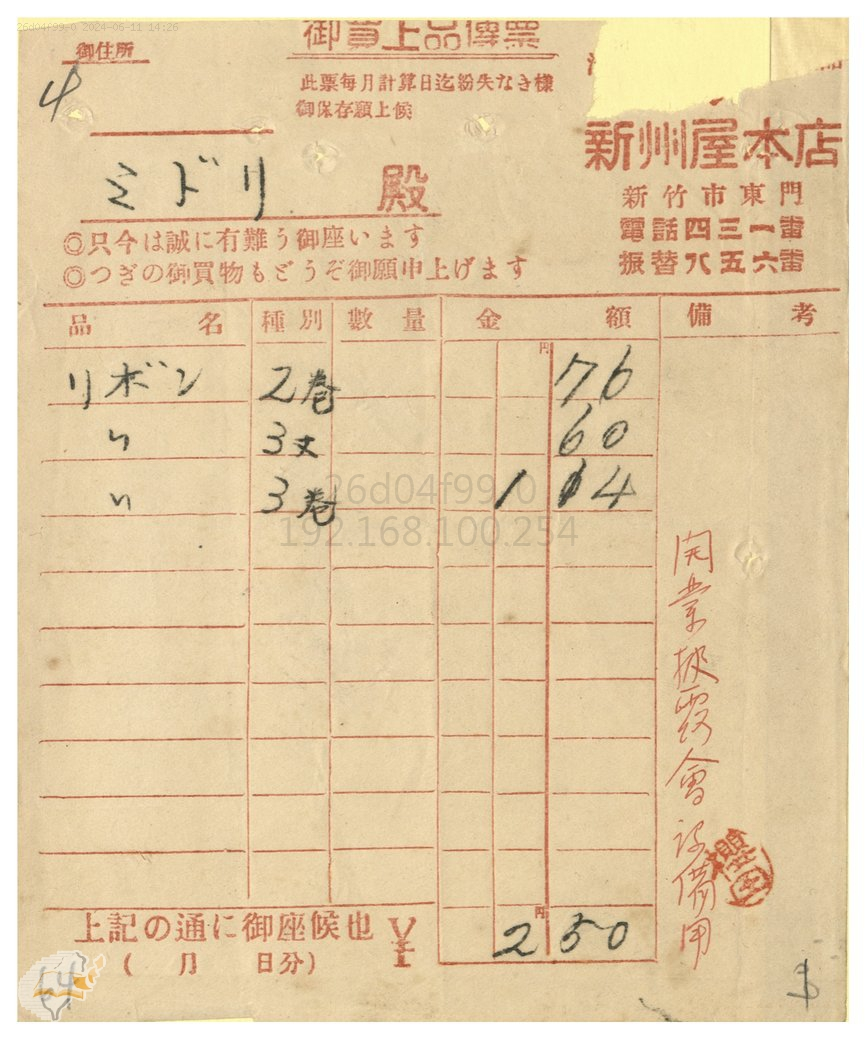 26d04f99/0 2024-06-11 14:26
御買上品傳票
御住所
4
此票每月計算日迄紛失なき樣
御保存願上候
新州屋本店
新竹市東門
電話四三一番
振替八五六番
ミドリ 殿
◎只今は誠に有難う御座います
◎つぎの御買物もどうぞ御願申上げます
品名 種別 數量 金額 備考
円
リボン 2巻 76
〃 3丈 60
〃 3巻 1 14
26d04f99/0
192.168.100.254
開業披露會設備用
円
上記の通に御座候也 ¥ 2 50
(月 日分)
64